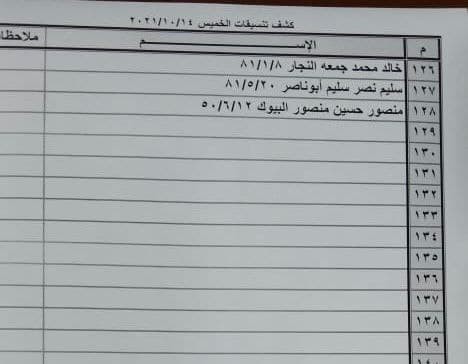 كشف تنسيقات الخميس ٢٠٢١/١٠/١٤
م الإســـــــم ملاحظات
١٢٦ خالد محمد جمعه النجار ٨١/١/٨
١٢٧ سليم نصر سليم أبوناصر ٨١/٥/٢٠
١٢٨ منصور حسين منصور البيوك ٥٠/٦/١٢
١٢٩
١٣٠
١٣١
١٣٢
١٣٣
١٣٤
١٣٥
١٣٦
١٣٧
١٣٨
١٣٩